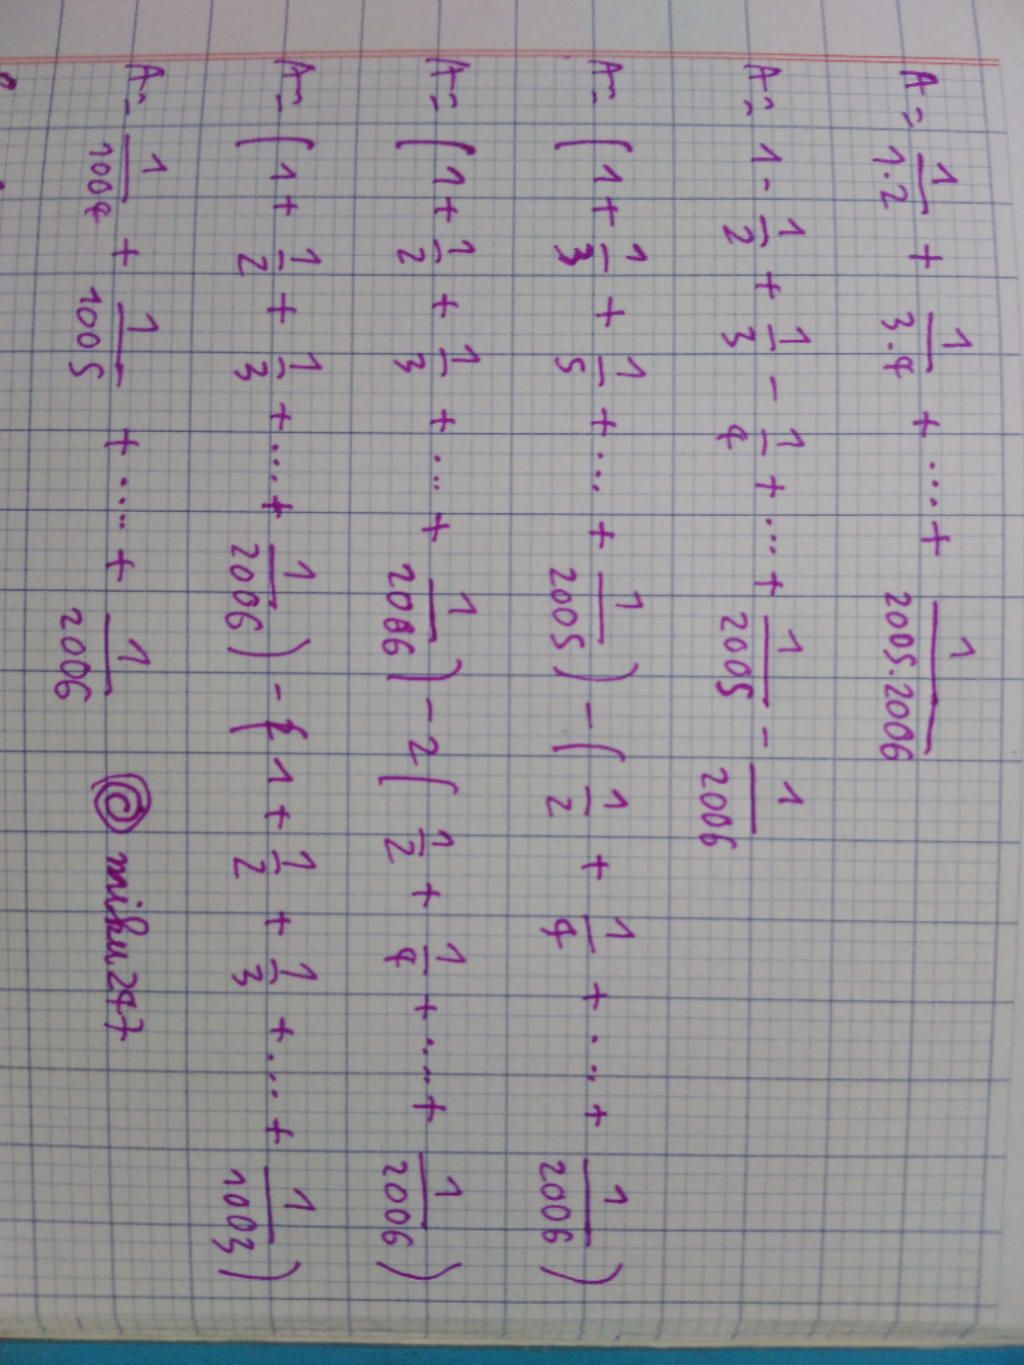 A = 1/1.2 + 1/3.4 + ... + 1/2005.2006
A = 1 - 1/2 + 1/3 - 1/4 + ... + 1/2005 - 1/2006
A = (1 + 1/3 + 1/5 + ... + 1/2005) - (1/2 + 1/4 + ... + 1/2006)
A = (1 + 1/2 + 1/3 + ... + 1/2006) - 2(1/2 + 1/4 + ... + 1/2006)
A = (1 + 1/2 + 1/3 + ... + 1/2006) - (1 + 1/2 + 1/3 + ... + 1/1003)
A = 1/1004 + 1/1005 + ... + 1/2006 © miku247